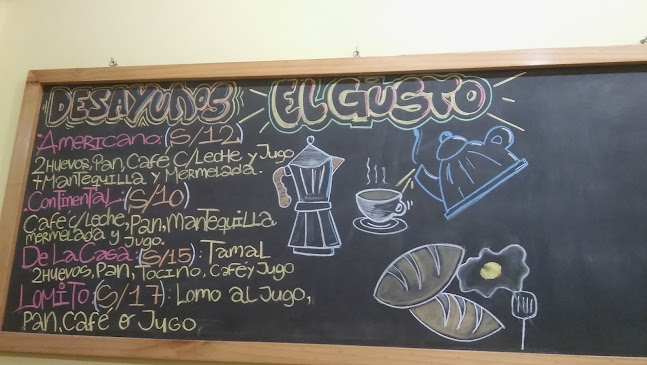 DESAYUNOS EL GUSTO
Americano: (S/12)
2 Huevos, Pan, Café C/Leche y Jugo
+ Mantequilla y Mermelada.
.Continental: (S/10)
Café c/Leche, Pan, Mantequilla
mermelada y Jugo.
De La Casa: (S/15): Tamal
2Huevos, Pan, Tocino, Café y Jugo
Lomito: (S/17): Lomo al Jugo,
Pan, Café o Jugo.